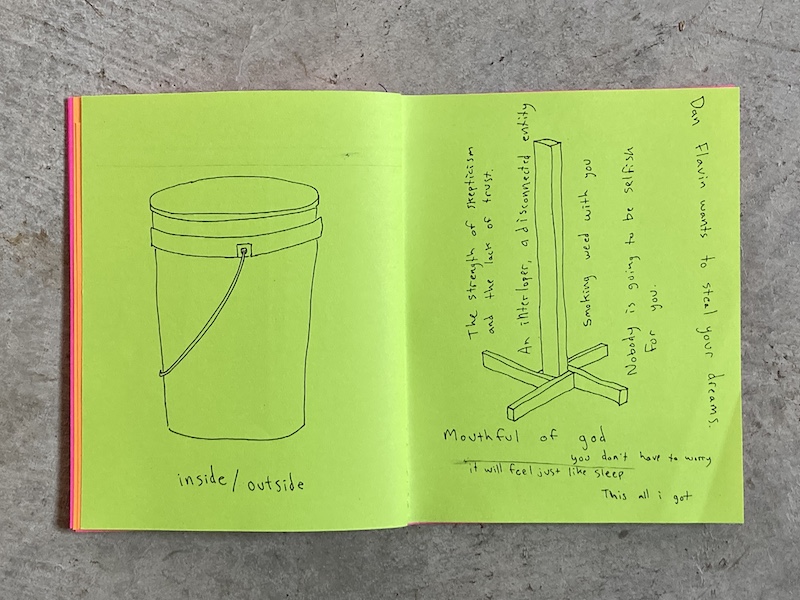 inside/outside
The strength of skepticism
and the lack of trust.
An interloper, a disconnected entity
Smoking weed with you
Nobody is going to be selfish
for you.
Dan Flavin wants to steal your dreams.
Mouthful of god
you don't have to worry
it will feel just like sleep
This all i got